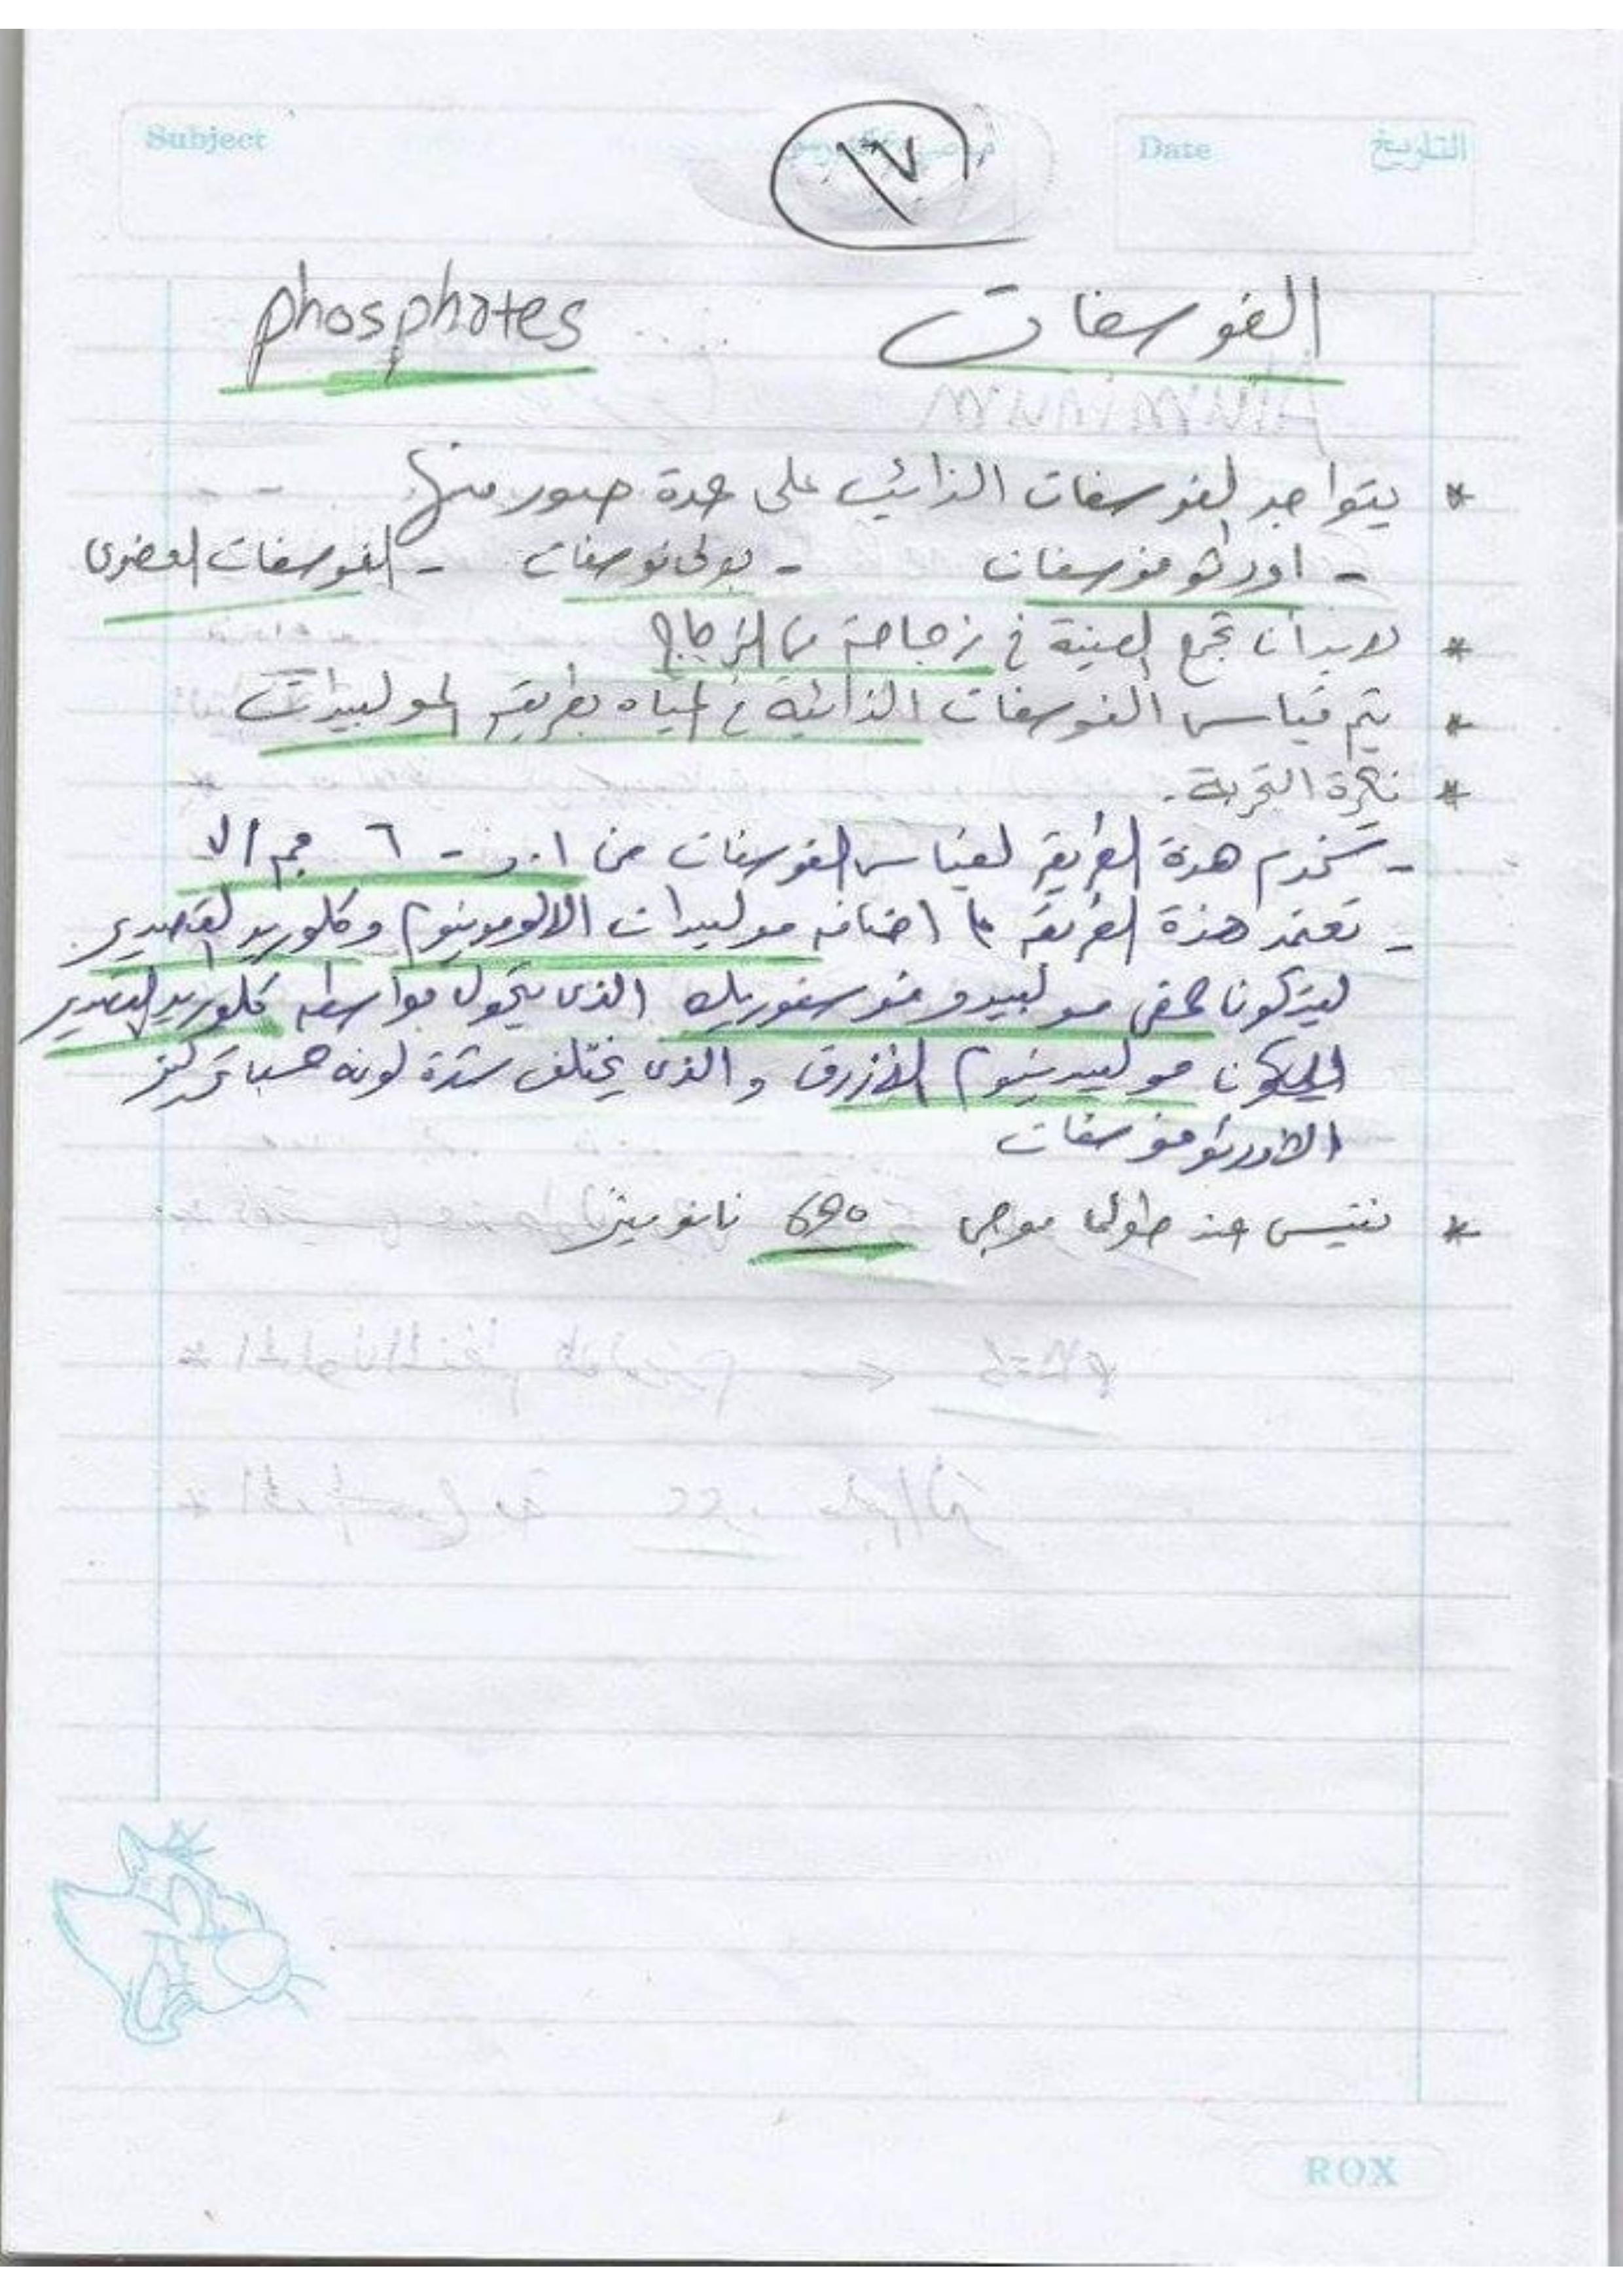 Subject
١٧
Date التاريخ
الفوسفات phosphates
* يتواجد الفوسفات الذائب على عدة صور منها
- اورثو فوسفات - بولى فوسفات - الفوسفات العضوى
* لابد ان تجمع العينة فى زجاجة من الزجاج
* يتم قياس الفوسفات الذائبة فى المياه بطريقة الموليبدات
* فكرة التجربة.
- تستخدم هذة الطريقة لقياس الفوسفات من ٠١و - ٦ مجم / ل
- تعتمد هذة الطريقة على اضافة موليبدات الالومونيوم وكلوريد القصدير
ليتكون حمض موليبدو فوسفوريك الذى يتحول بواسطة كلوريد القصدير
ليكون موليبدينيوم الازرق والذى يختلف شدة لونه حسب تركيز
الاورثو فوسفات
* نقيس عند طول موجى 690 نانوميتر
ROX